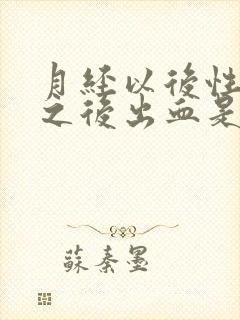 月經以後性
之後出血是
蘇秦墨